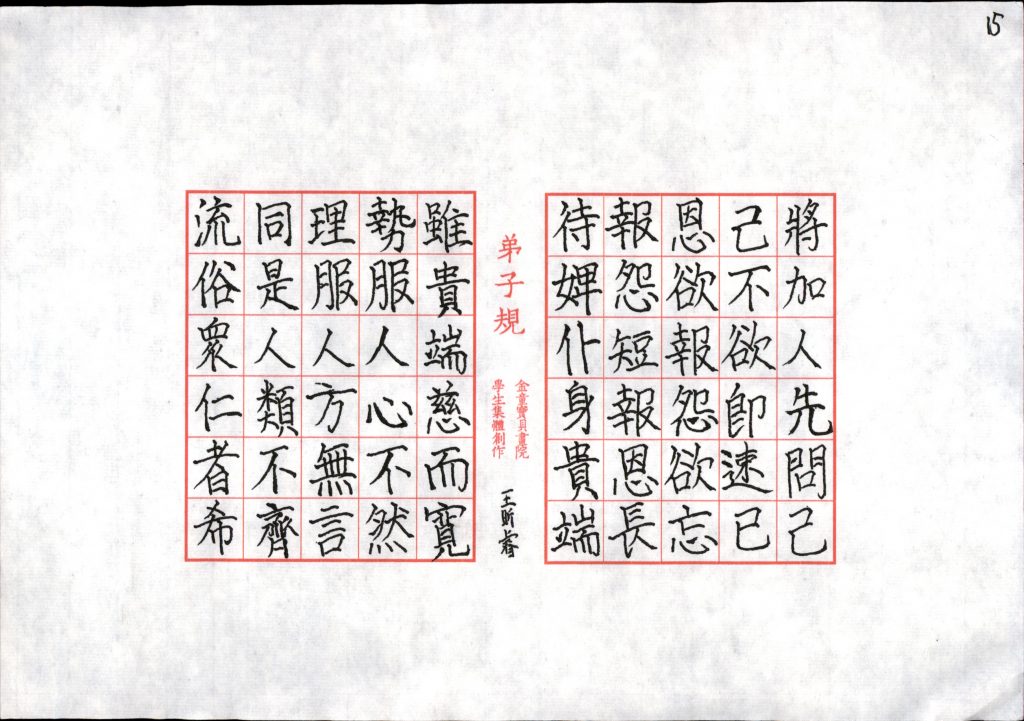 15
將加人先問己
己不欲即速已
恩欲報怨欲忘
報怨短報恩長
待婢仆身貴端
弟子規
金童寶貝書院
學生集體創作
王昕睿
雖貴端慈而寬
勢服人心不然
理服人方無言
同是人類不齊
流俗眾仁者希